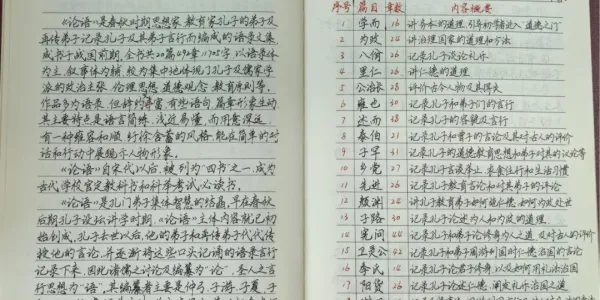 《论语》是春秋时期思想家教育家孔子的弟子及
再传弟子记录孔子及其弟子言行而编成的语录文集
成书于战国前期,全书共20篇492章11705字,以语录体
为主,叙事体为辅,较为集中地体现了孔子及儒家学
派的政治主张、伦理思想、道德观念、教育原则等,
作品多为语录,但辞约义富,有些语句、篇章形象生动
其主要特点是语言简练,浅近易懂,而用意深远,
有一种雍容和顺、纡徐含蓄的风格,能在简单的对
话和行动中展现示人物形象。
《论语》自宋代以后,被列为“四书”之一,成为
古代学校官定教科书和科举考试必读书。
《论语》是孔门弟子集体智慧的结晶,早在春秋
后期孔子设坛讲学时期,《论语》主体内容就已初
始创成,孔子去世以后,他的弟子和再传弟子代代传
授他的言论,并逐渐将这些口头记诵的语录言行
记录下来,因此诸儒之讨论及编纂为“论”,圣人之言
行思想为“语”,其编纂者主要是仲弓、子游、子夏、子
序号 篇目 章数 内容概要
1 学而 16 讲务本的道理,引导初学者进入“道德之门”
2 为政 24 讲治理国家的道理和方法
3 八佾 26 记录孔子谈论礼乐
4 里仁 26 讲仁德的道理
5 公冶长 28 讲评价古今人物及其得失
6 雍也 30 记录孔子和弟子们的言行
7 述而 38 记录孔子的容貌及言行
8 泰伯 21 记孔子和曾子的言论及其对古人的评价
9 子罕 31 记录孔子的道德教育思想和弟子对其的议论等
10 乡党 27 记录孔子言谈举止,衣食住行和生活习惯
11 先进 26 记录孔子教育言论和对其弟子的评论
12 颜渊 24 讲孔子教育弟子如何施仁德,如何为政处世
13 子路 30 记录孔子论述为人和为政的道理
14 宪问 44 记录孔子和弟子论修身为人之道,及对古人的评价
15 卫灵公 42 记孔子和弟子周游列国时仁德治国的言论
16 季氏 14 记孔子论君子修身,以及如何用礼法治国
17 阳货 26 记录孔子论述仁德,阐发礼乐治国之道